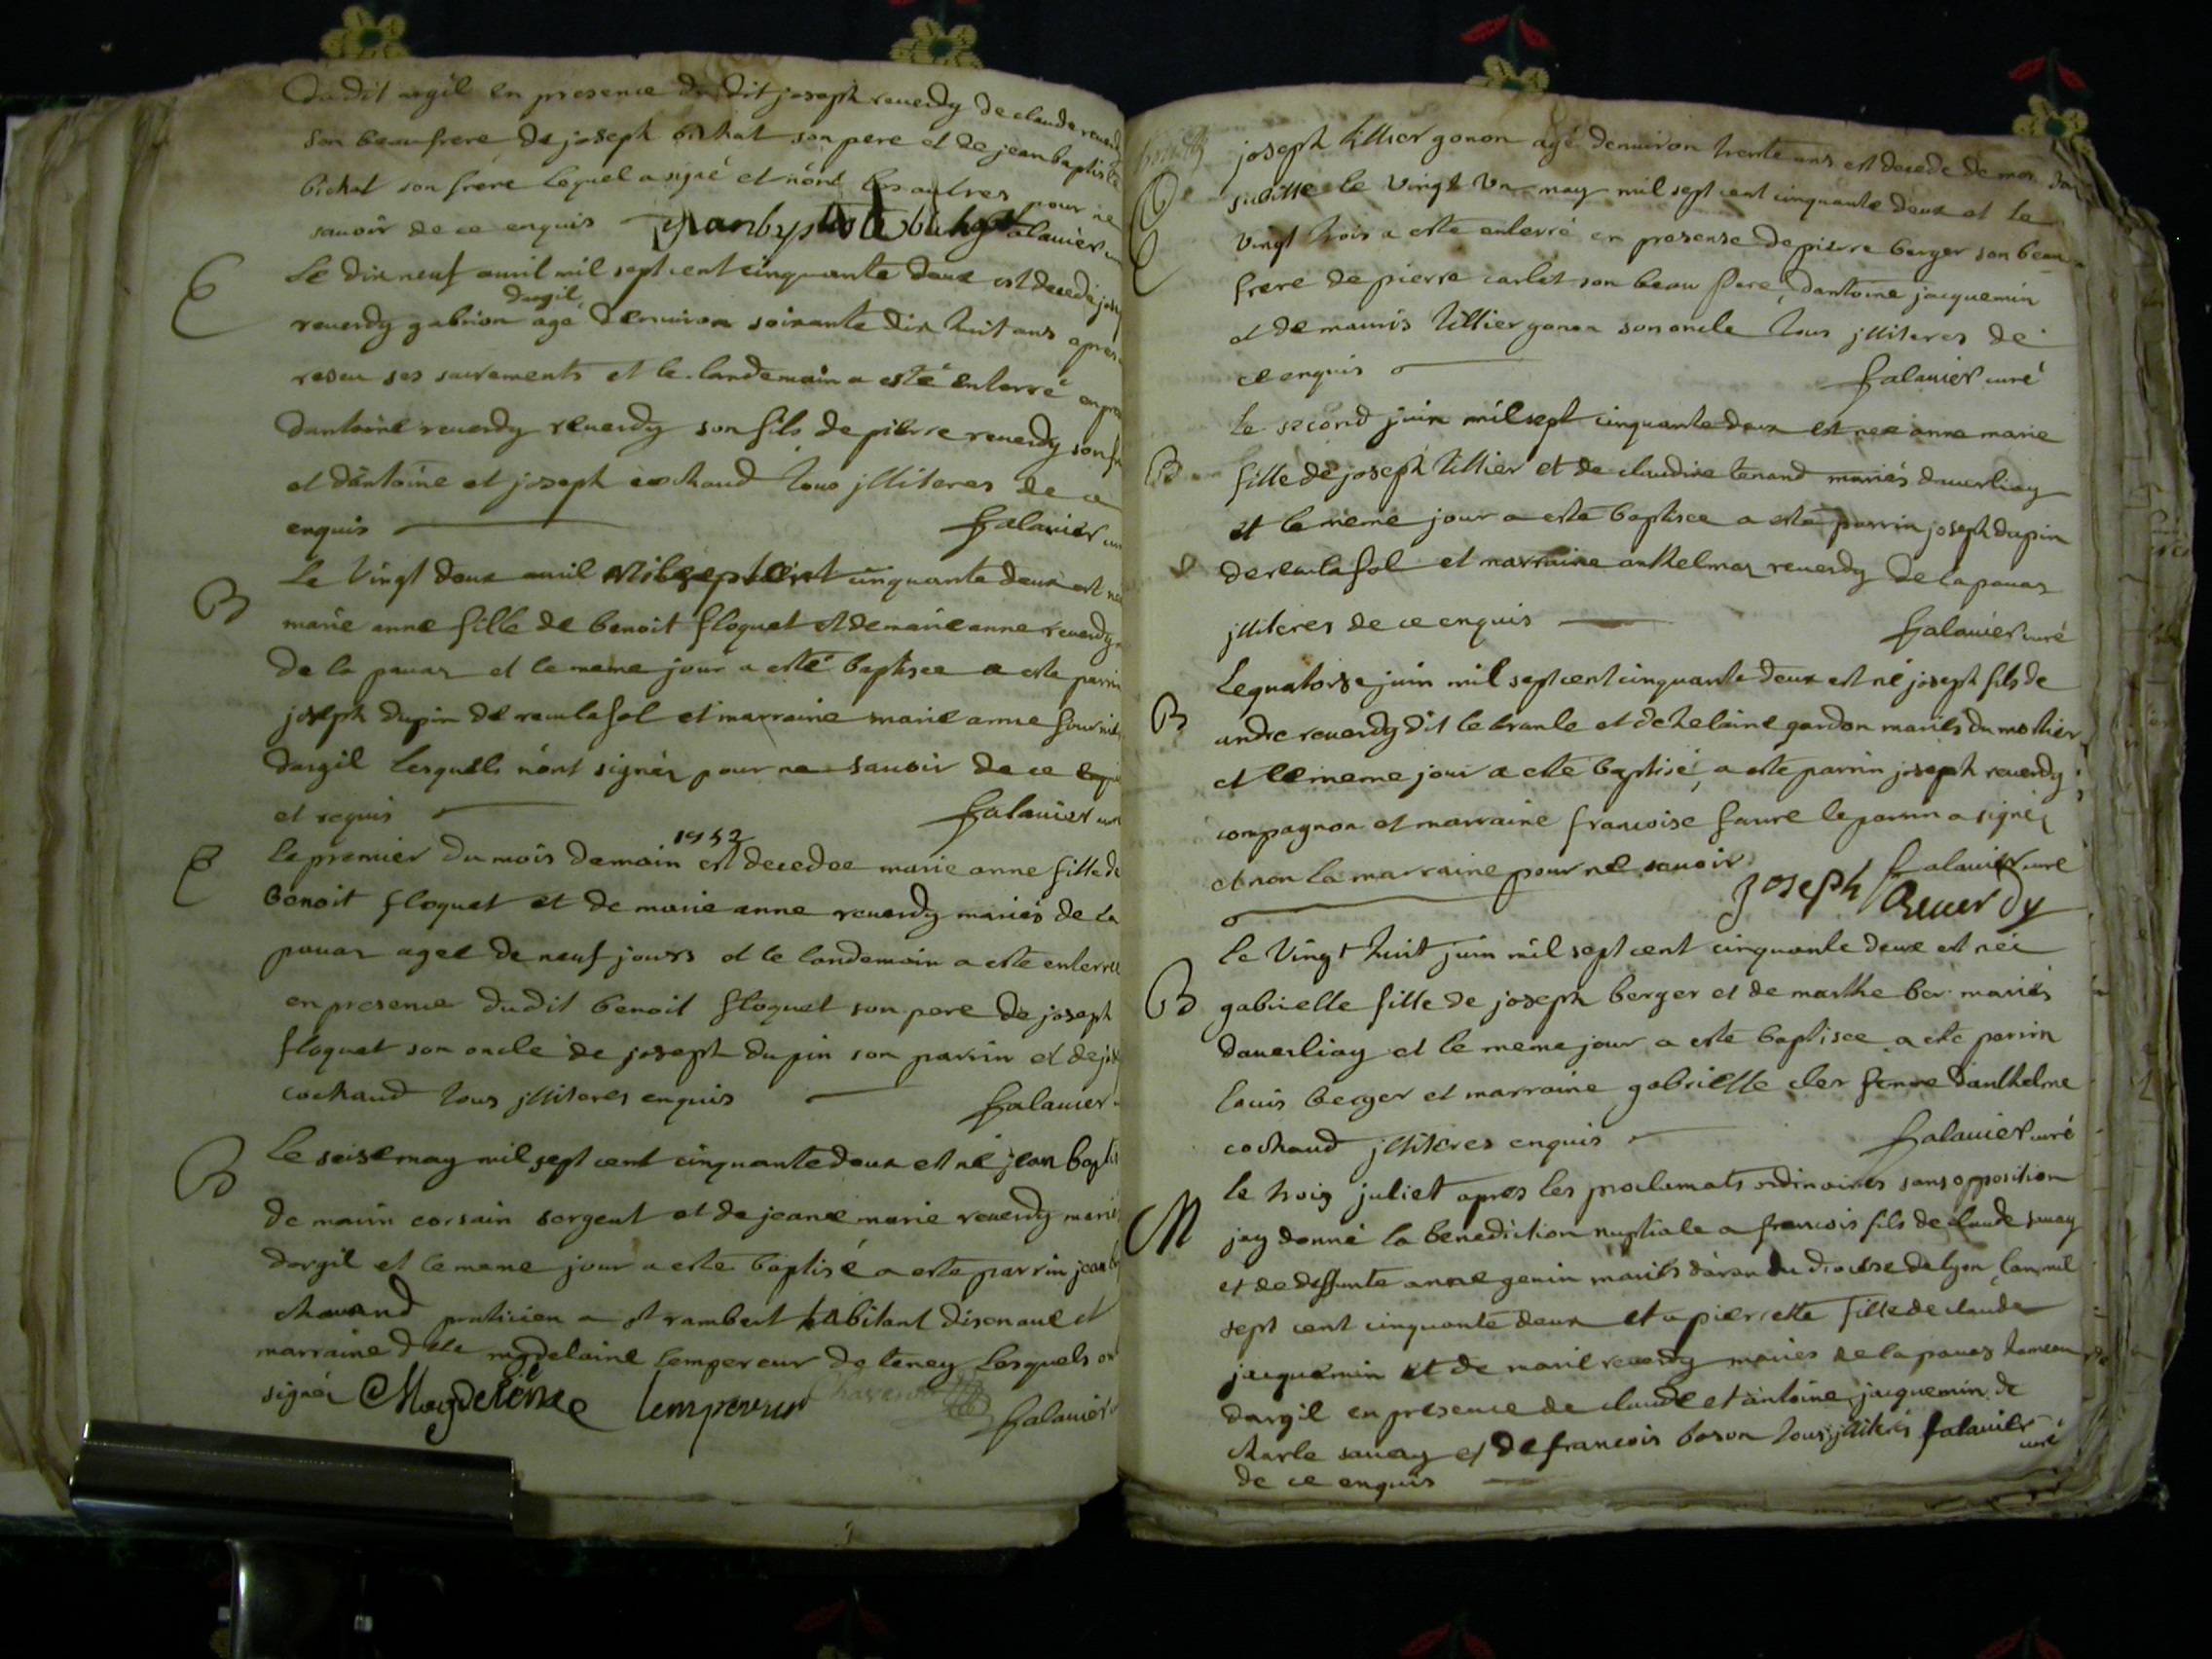 dudit argil en presence dudit joseph reuerdy de claude reuerdy
son beaufrere de joseph bichat son pere et de jeanbaptiste
bichat son frere lequel a signé et nont les autres pour ne
sauoir de ce enquis jeanbaptiste bichat falauier
E
Le dix neuf auril mil sept cent cinquante deux est decede
dargil
reuerdy gabrion agé denuiron soixante dix huit ans apres
reseu ses sacrements et le landemain a esté enterré en
dantoine reuerdy reuerdy son fils de pierre reuerdy son
et dantoine et joseph cochaud tous jlliteres de ce
enquis falauier
B
Le vingt deux auril mil sept cent cinquante deux est
marie anne fille de benoit floquet et de marie anne reuerdy
de la pauaz et le meme jour a esté baptisee a este parrin
joseph dupin de reculafol et marraine marie anne
dargil lesquels nont signéz pour ne sauoir de ce
et requis falauier
1752
E
le premier du mois de main est decedee marie anne fille de
benoit floquet et de marie anne reuerdy mariés de la
pauaz agee de neuf jours et le landemain a este enterree
en presence dudit benoit floquet son pere de joseph
floquet son oncle de joseph dupin son parrin et de
cochaud tous jlliteres enquis falauier
B
Le seise may mil sept cent cinquante deux est né jean
de marin corsain sergent et de jeane marie reuerdy mariés
dargil et le meme jour a este baptisé a este parrin jean
chauand praticien a st rambert habitant disenaue et
marraine dlle magdelaine lempereur de teney lesquels
signéz Magdeleine lempereur falauier
joseph tillier gonon agé denuiron trente ans est decede de mor
subitte le vingt un may mil sept cent cinquante deux et le
E
vingt trois a este enterré en presense de pierre berger son beau
frere de pierre carlet son beau pere dantoine jacquemin
et de mauris tillier gonon son oncle tous jlliteres de
ce enquis falauier curé
le second juin mil sept cinquante deux est nee anne marie
B
fille de joseph tillier et de claudine tenand mariés dauerliay
et le meme jour a este baptisee a este parrin joseph dupin
de reculafol et marraine anthelmaz reuerdy de la pauaz
jlliteres de ce enquis falauier curé
Le quatorse juin mil sept cent cinquante deux est né joseph fils de
B
andre reuerdy dit le branle et de helaine gardon mariés du mollier
et le meme jour a este baptisé a este parrin joseph reuerdy
compagnon et marraine francoise faure le parrin a signé
et non la marraine pour ne sauoir falauier curé
joseph Reuerdy
le vingt huit juin mil sept cent cinquante deux est née
B
gabrielle fille de joseph berger et de marthe ber mariés
dauerliay et le meme jour a este baptisee a este parrin
louis berger et marraine gabrielle cler femme danthelme
cochaud jlliteres enquis falauier curé
le trois juliet apres les proclamats ordinaires sans opposition
M
jay donné la benediction nuptiale a francois fils de claude sauay
et de deffunte anne genin mariés daran du diocese de lyon lan mil
sept cent cinquante deux et a pierrette fille de claude
jacquemin et de marie reuerdy mariés de la pauaz hameau
dargil en presence de claude et antoine jacquemin de
charle sauay et de francois boson tous jlliteres falauier curé
de ce enquis